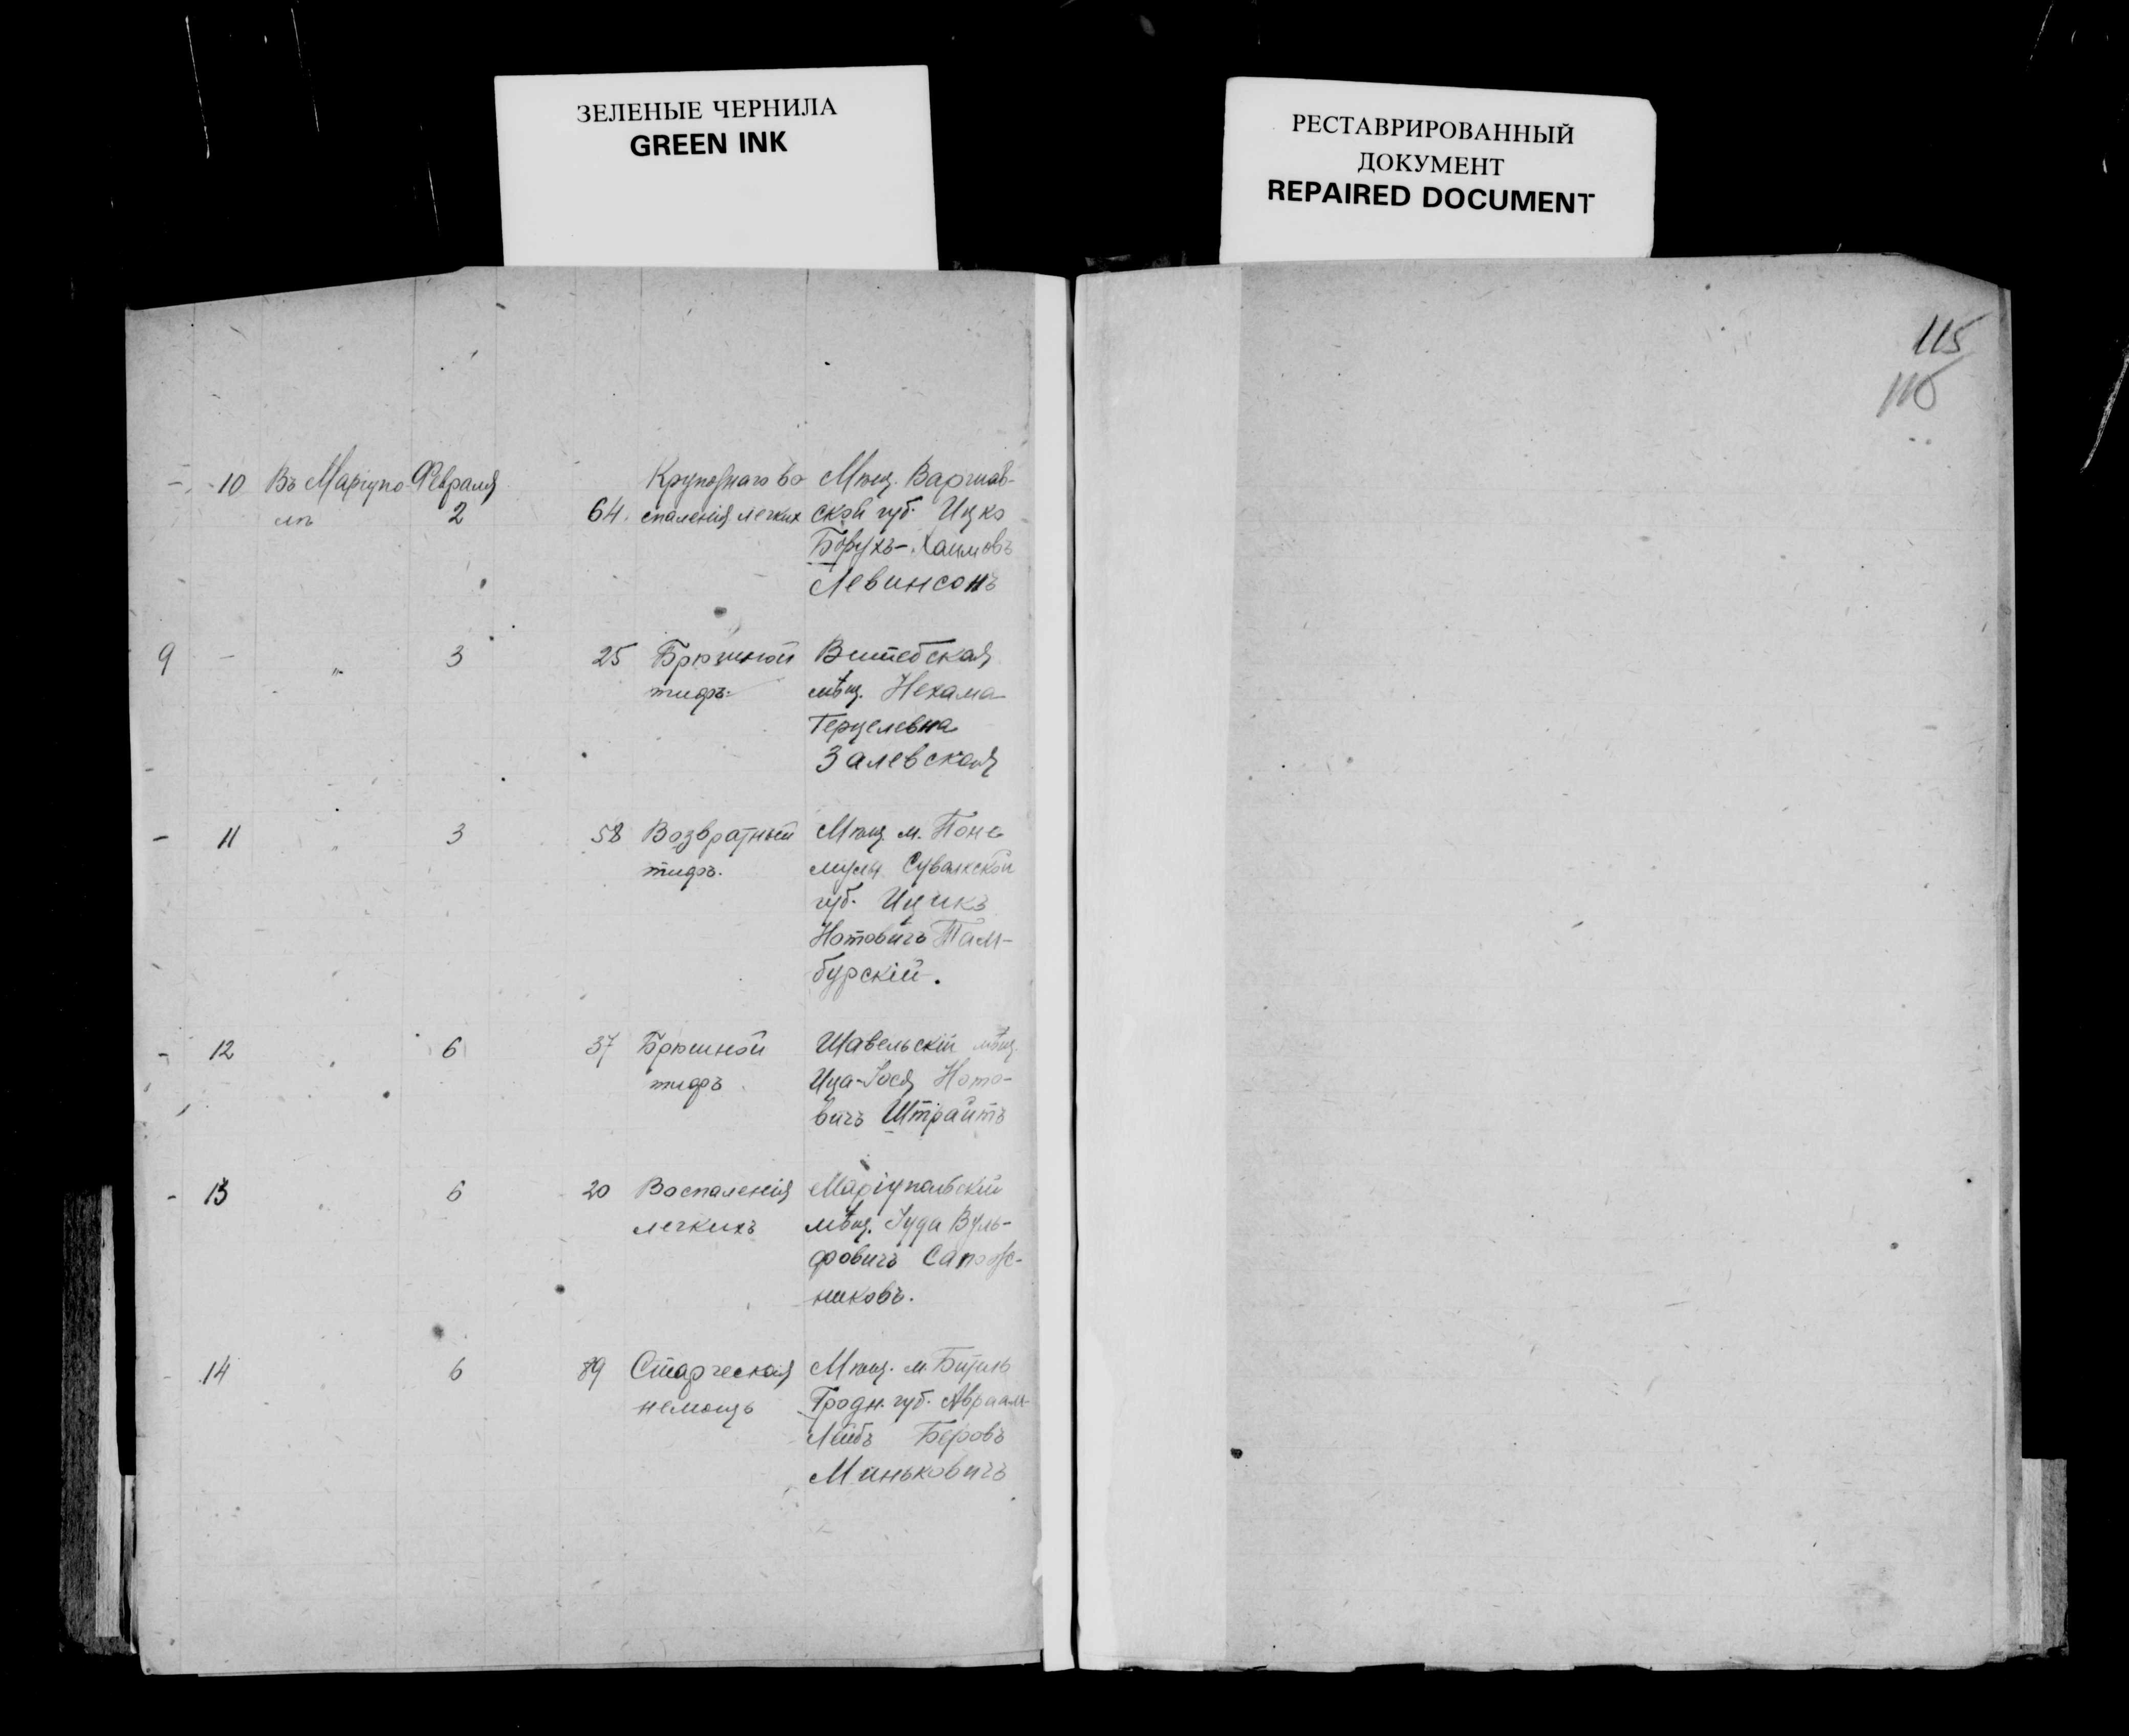 ЗЕЛЕНЫЕ ЧЕРНИЛА
GREEN INK
РЕСТАВРИРОВАННЫЙ
ДОКУМЕНТ
REPAIRED DOCUMENT
115
- 10 Въ Маріупо- Февраля Крупознаго во- Мѣщ. Варшав-
лѣ 2 64. спаленія легких ской губ. Ицко
Борухъ-Хаимовъ
Левинсонъ
9 - " 3 25 Брюшной Витебская
тифъ. мѣщ. Нехама
Герцелевна
Залевская
- 11 " 3 58 Возвратный Мѣщ. м. Поне
тифъ. муня Сувалкской
губ. Ицикъ
Нотовичъ Там-
бурскій.
- 12 6 37 Брюшной Шавельскій мѣщ.
тифъ Ица-Іося Ното-
вичъ Штрайтъ
- 13 " 6 20 Воспаленія Маріупольскій
легкихъ мѣщ. Іуда Вуль-
фовичъ Сапож-
никовъ.
- 14 6 89 Старческая Мѣщ. м.
немощь Гродн. губ. Авраам-
Лейбъ Беровъ
Миньковичъ